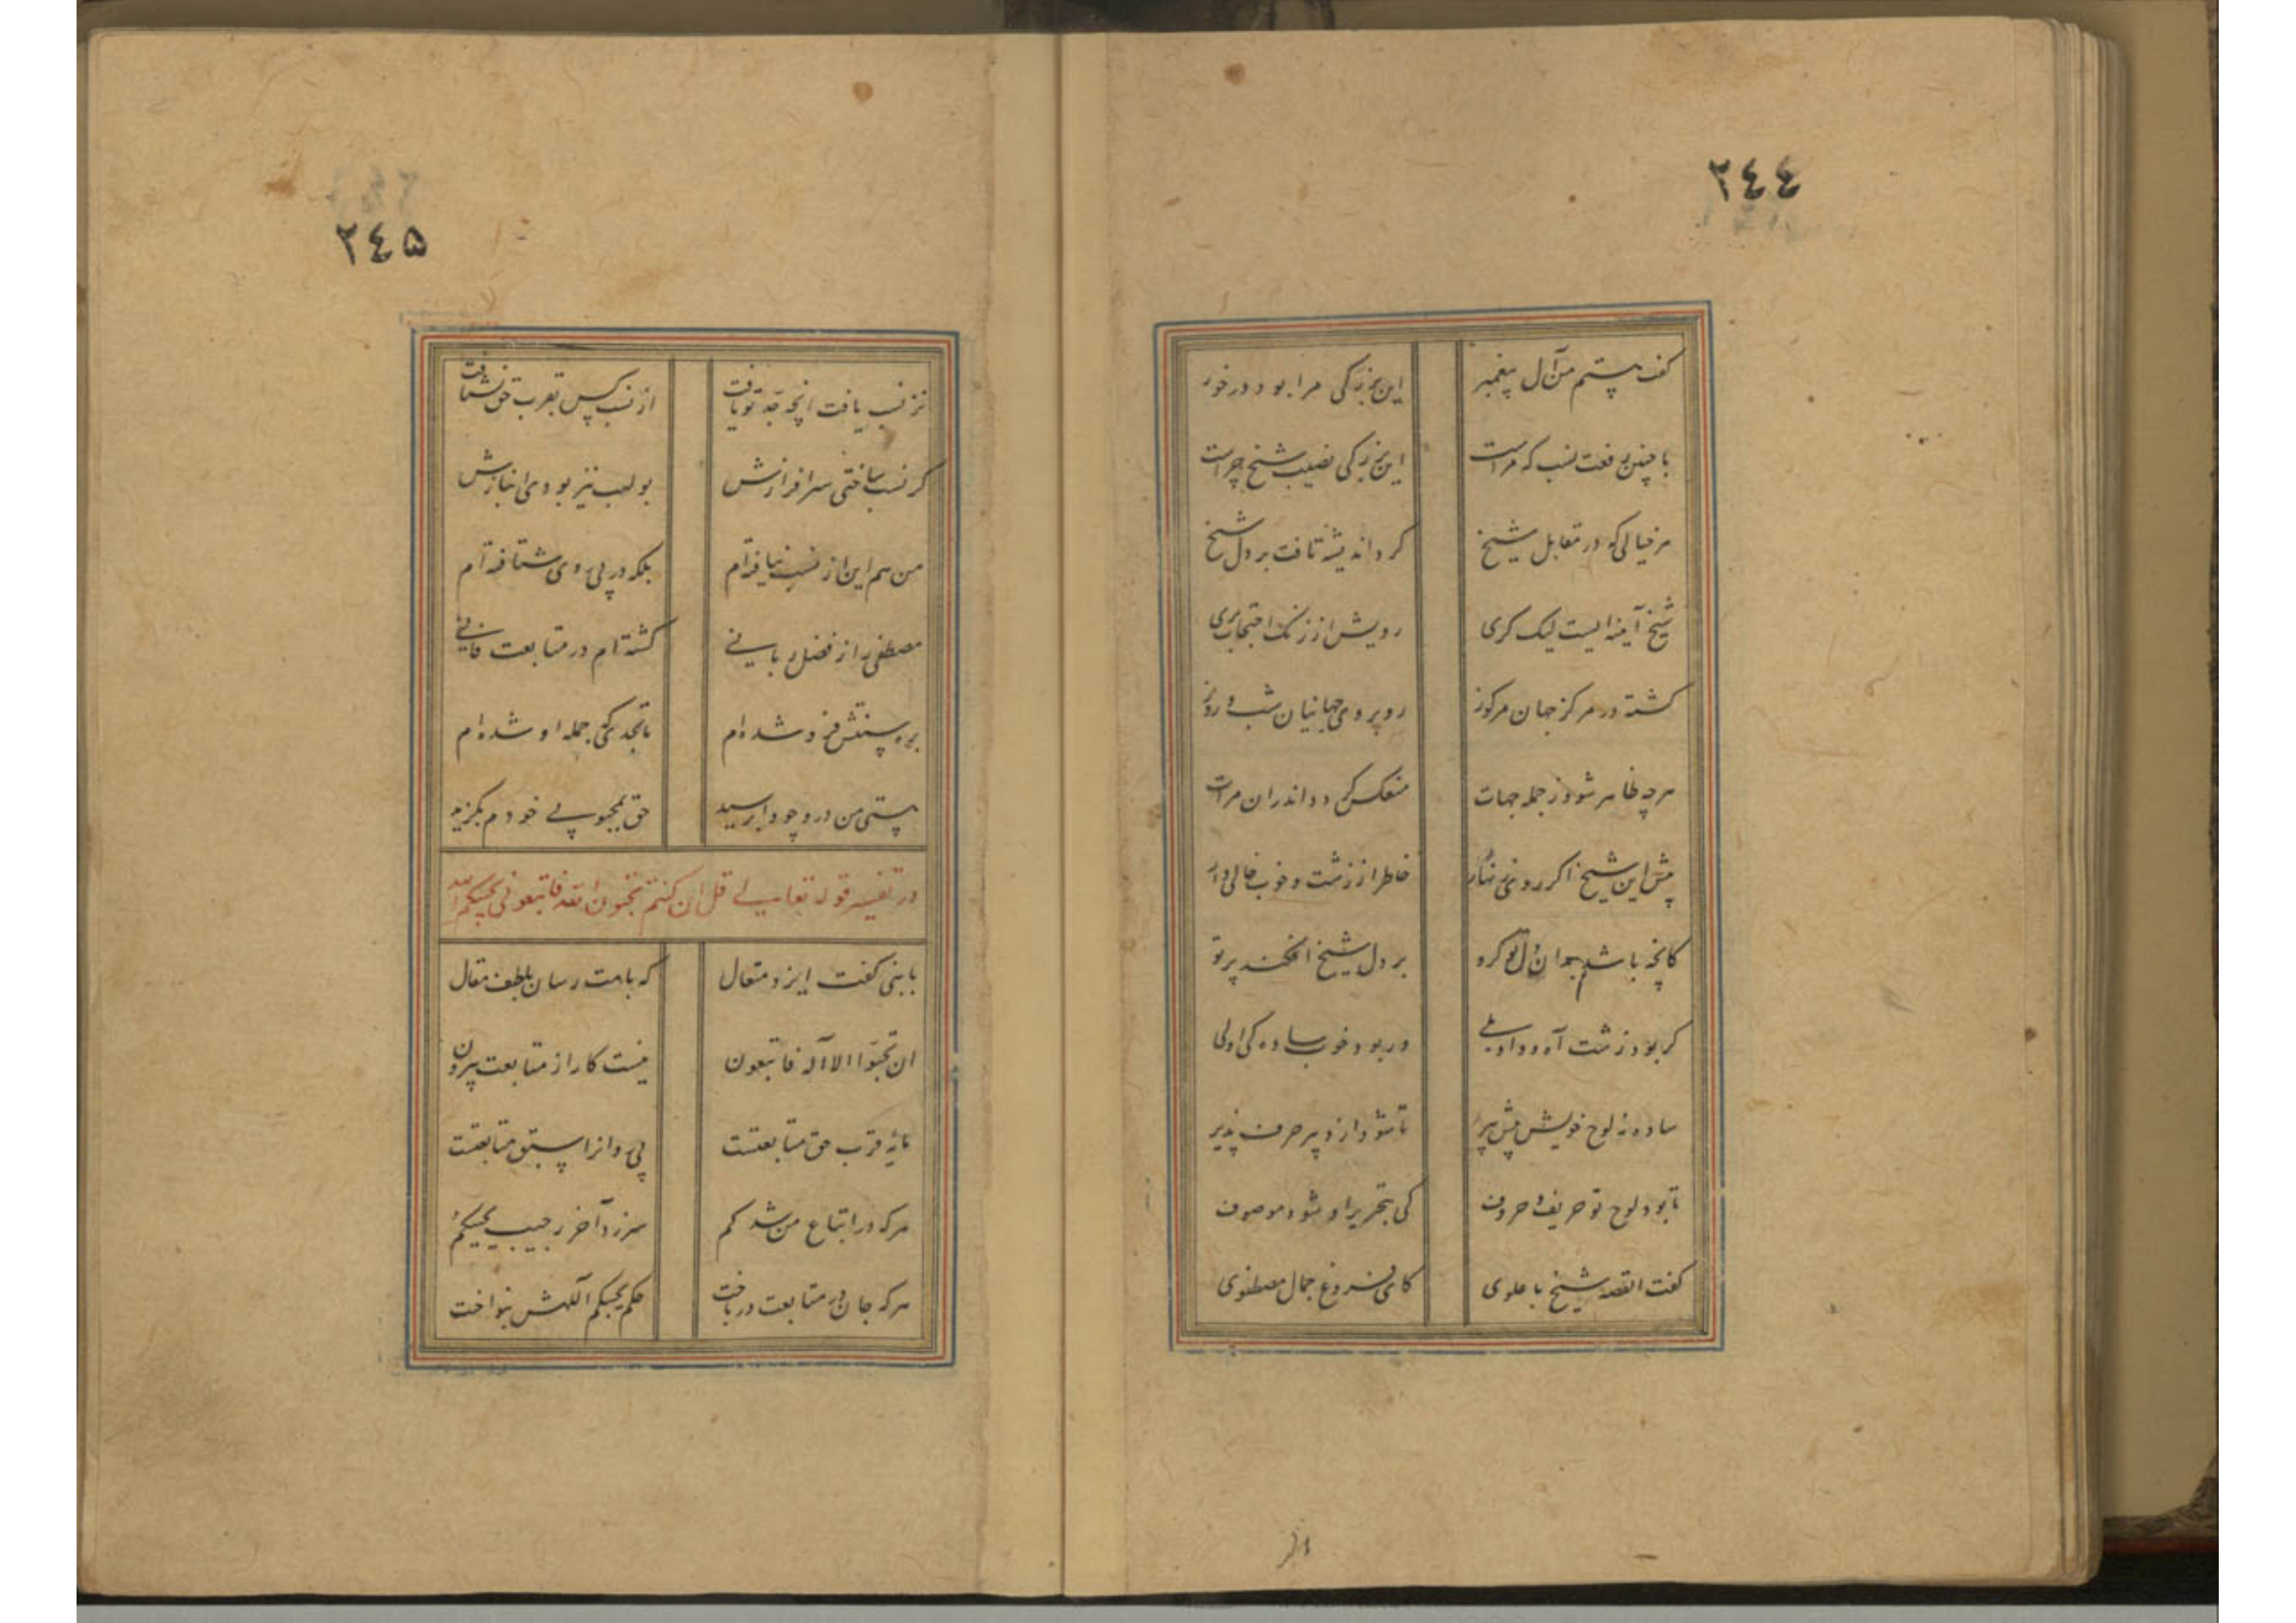 ٢٤٤
گفت هستم من آل پیغمبر این بزرگی مرا بود درخور
با چنین رفعت نسب که مراست این بزرگی نصیب شیخ چراست
هر خیالی که در مقابل شیخ کرد اندیشه تافت بر دل شیخ
شیخ آینه ایست لیک کری رویش از زنگ احتجاب بری
گشته در مرکز جهان مرکوز روبروی جهانیان شب و روز
هرچه ظاهر شود ز جمله جهات منعکس گردد اندران مرات
پیش این شیخ اگر روی زنهار خاطر از زشت و خوب خالی دار
کانچه باشد بدان دل تو گرو بر دل شیخ افکند پرتو
گر بود زشت آه و واویلی ور بود خوب سادگی اولی
ساده رو لوح خویش پیش پیر تا شود از دبیر حرف پذیر
تا بود لوح تو حریف حروف کی بتحریر او شود موصوف
گفت القصه شیخ با علوی کای فروغ جمال مصطفوی
٢٤۵
نز نسب یافت انچه جد تو یافت از نسب پس بقرب حق نشتافت
گر نسب ساختی سرافرازش بولهب نیز بودی انبازش
من هم این از نسب نیافته‌ام بلکه در پی روی شتافته‌ام
مصطفی را ز فضل ربانی گشته‌ام در متابعت فانی
بره سنتش فرو شده‌ام تا بحدی که جمله او شده‌ام
هستی من در وجود او برسید حق بمحبوبی خودم بگزید
در تفسیر قوله تعالی قل ان کنتم تحبون الله فاتبعونی یحببکم الله
با نبی گفت ایزد متعال که بامت رسان بلطف مقال
ان تحبوا الاله فاتبعون نیست کار از متابعت بیرون
مایه قرب حق متابعتست پی روانرا سبق متابعتست
هرکه در اتباع من شد گم سر زد آخر ز جیب یحببکم
هرکه جان در متابعت درباخت حکم یحببکم الهش بنواخت